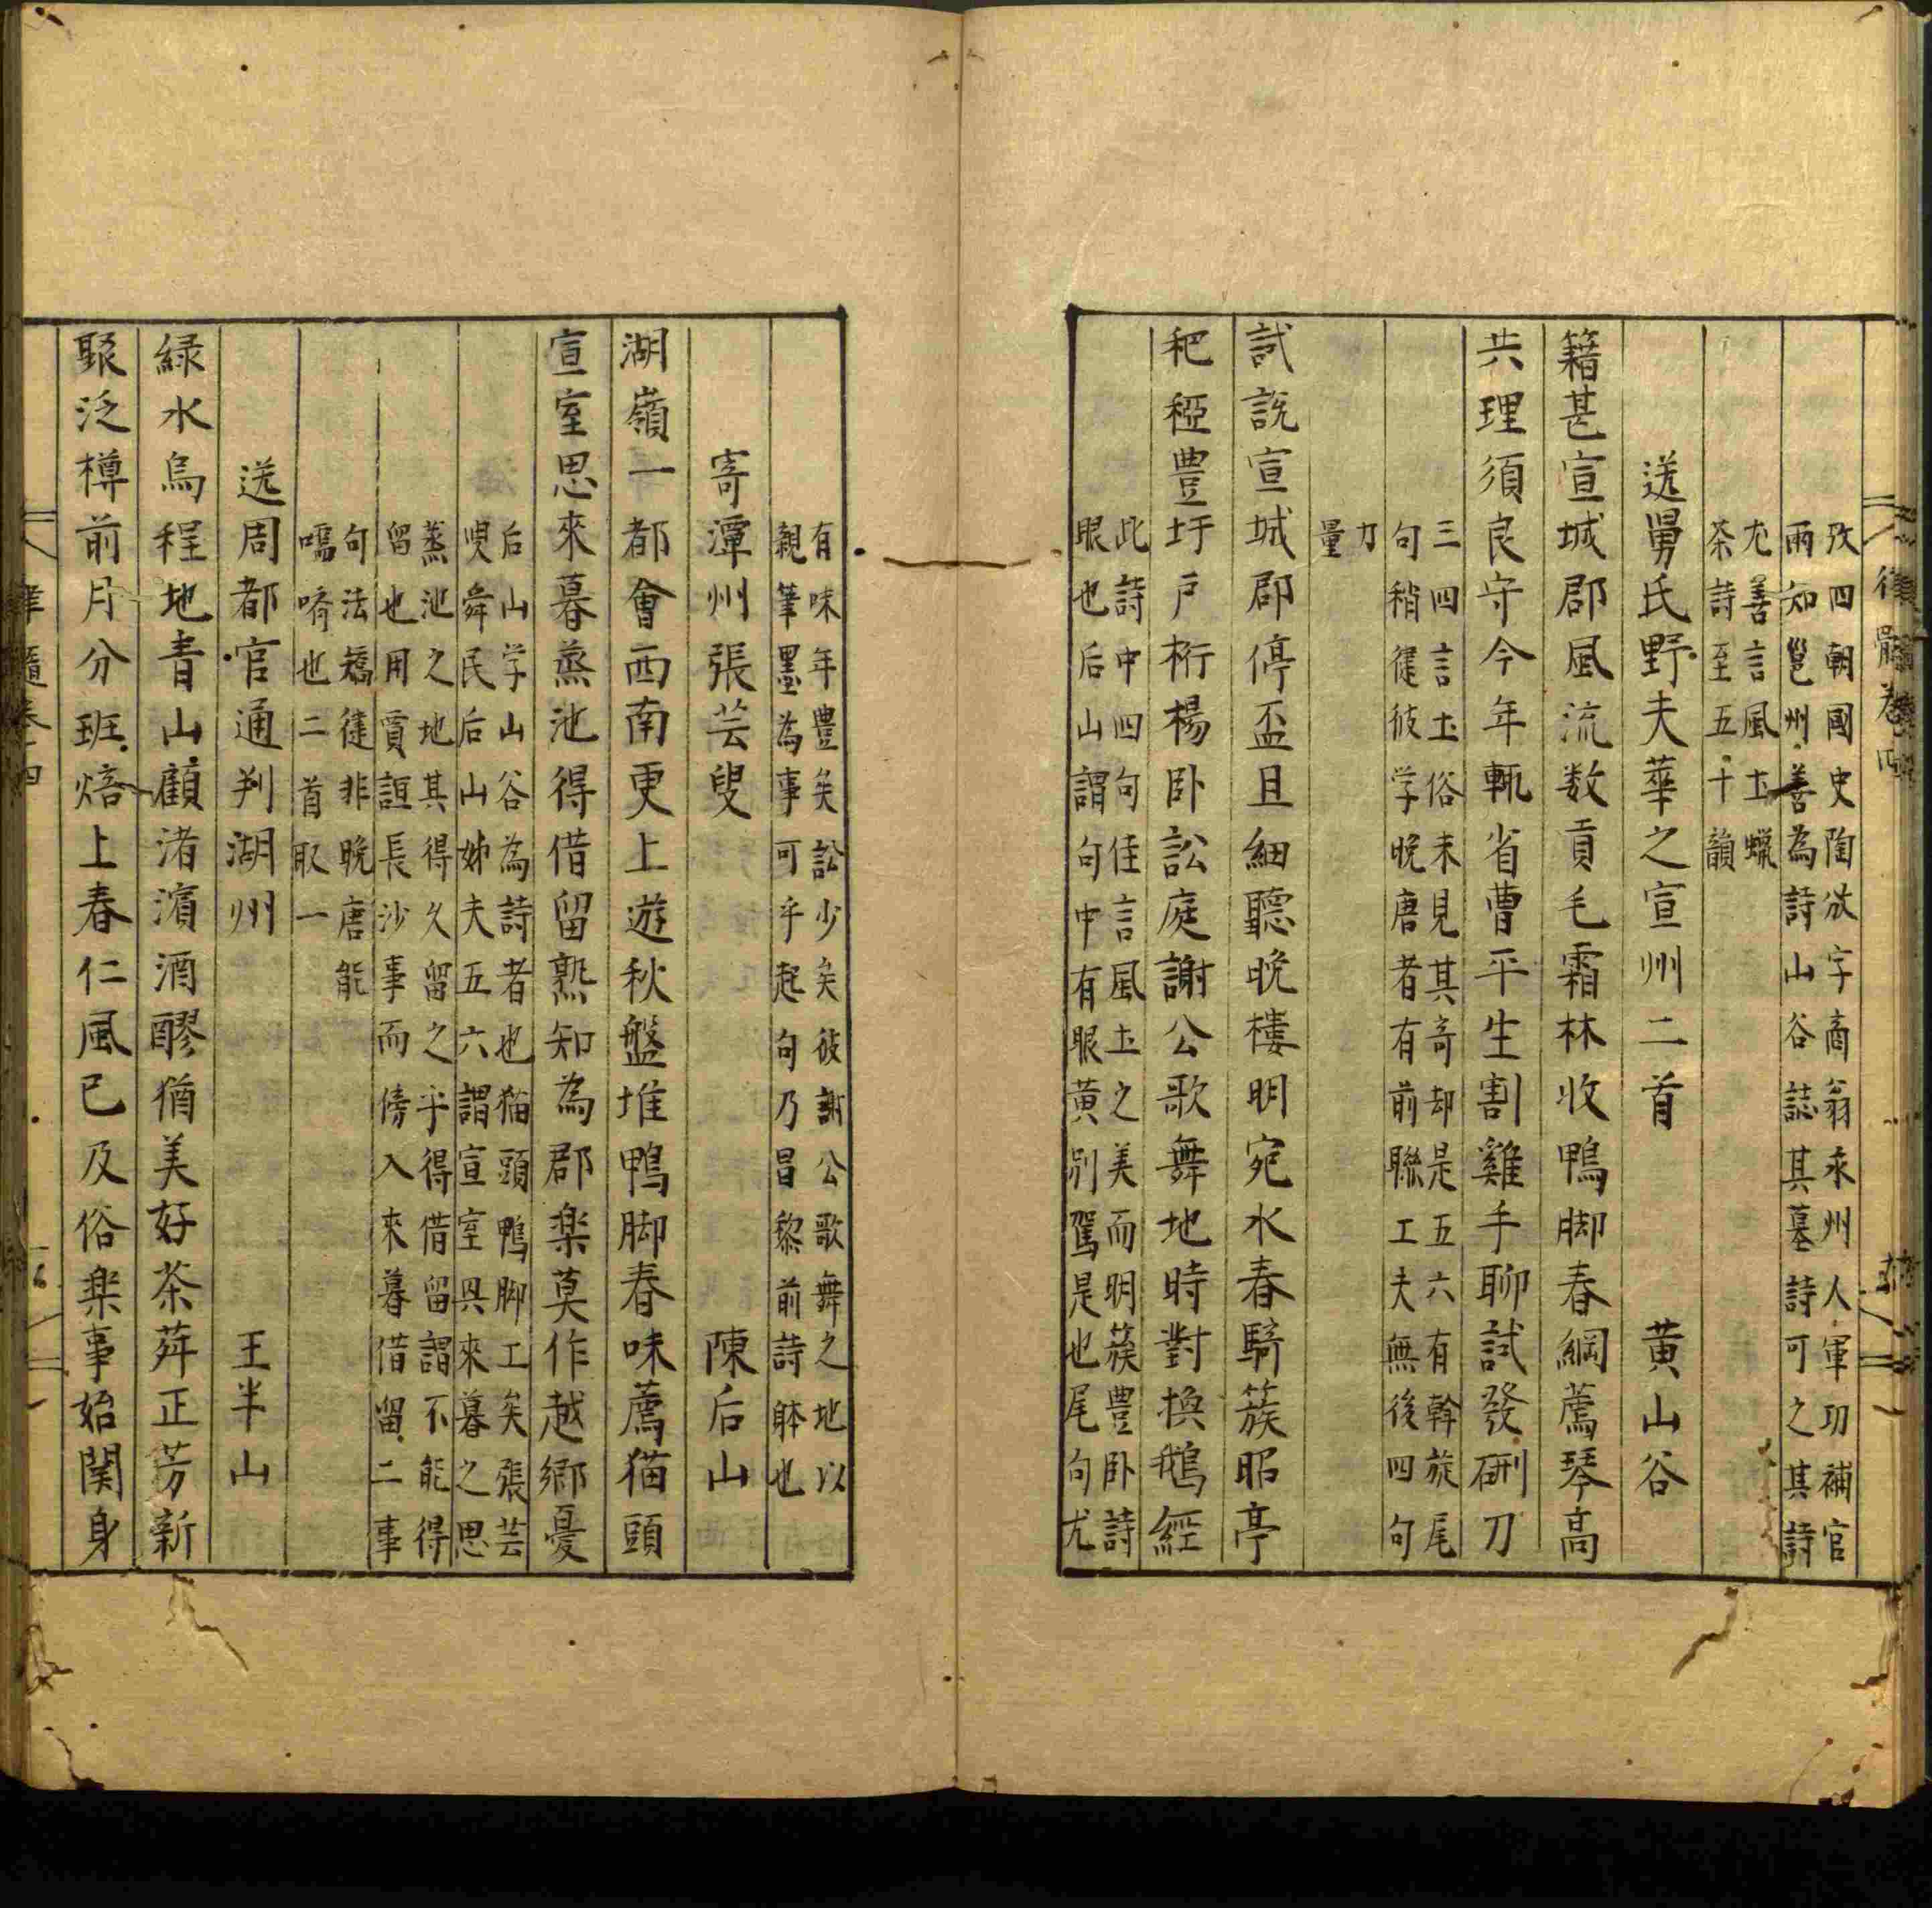 攷四朝國史陶弼字商翁永州人軍功補官
兩知邕州善為詩山谷誌其墓詩可之其詩
尤善言風土蠟
茶詩至五十韻
送舅氏野夫華之宣州二首　黄山谷
籍甚宣城郡風流数貢毛霜林收鴨脚春綱薦琴高
共理須良守今年輒省曹平生割雞手聊試發硎刀
三四言土俗未見其奇却是五六有斡旋尾
句稍健彼学晚唐者有前聯工夫無後四句
力
量
試説宣城郡停盃且細聽晚樓明宛水春騎簇昭亭
䆉稏豊圩戸桁楊卧訟庭謝公歌舞地時對換鵝經
此詩中四句佳言風土之美而明簇豊卧詩
眼也后山謂句中有眼黄别駕是也尾句尤
有味年豊矣訟少矣彼謝公歌舞之地以
親筆墨為事可乎起句乃昌黎前詩躰也
寄潭州張芸叟　陳后山
湖嶺一都會西南更上遊秋盤堆鴨脚春味薦猫頭
宣室思來暮蒸池得借留熟知為郡楽莫作越鄉憂
后山学山谷為詩者也猫頭鴨脚工矣張芸
叟舜民后山姊夫五六謂宣室具來暮之思
蒸池之地其得久留之乎得借留謂不能得
留也用賈誼長沙事而傍入來暮借留二事
句法矯健非晚唐能
嚅唷也二首取一
送周都官通判湖州　王半山
緑水烏程地青山顧渚濱酒醪猶美好茶荈正芳新
聚泛樽前月分班焙上春仁風已及俗楽事始関身